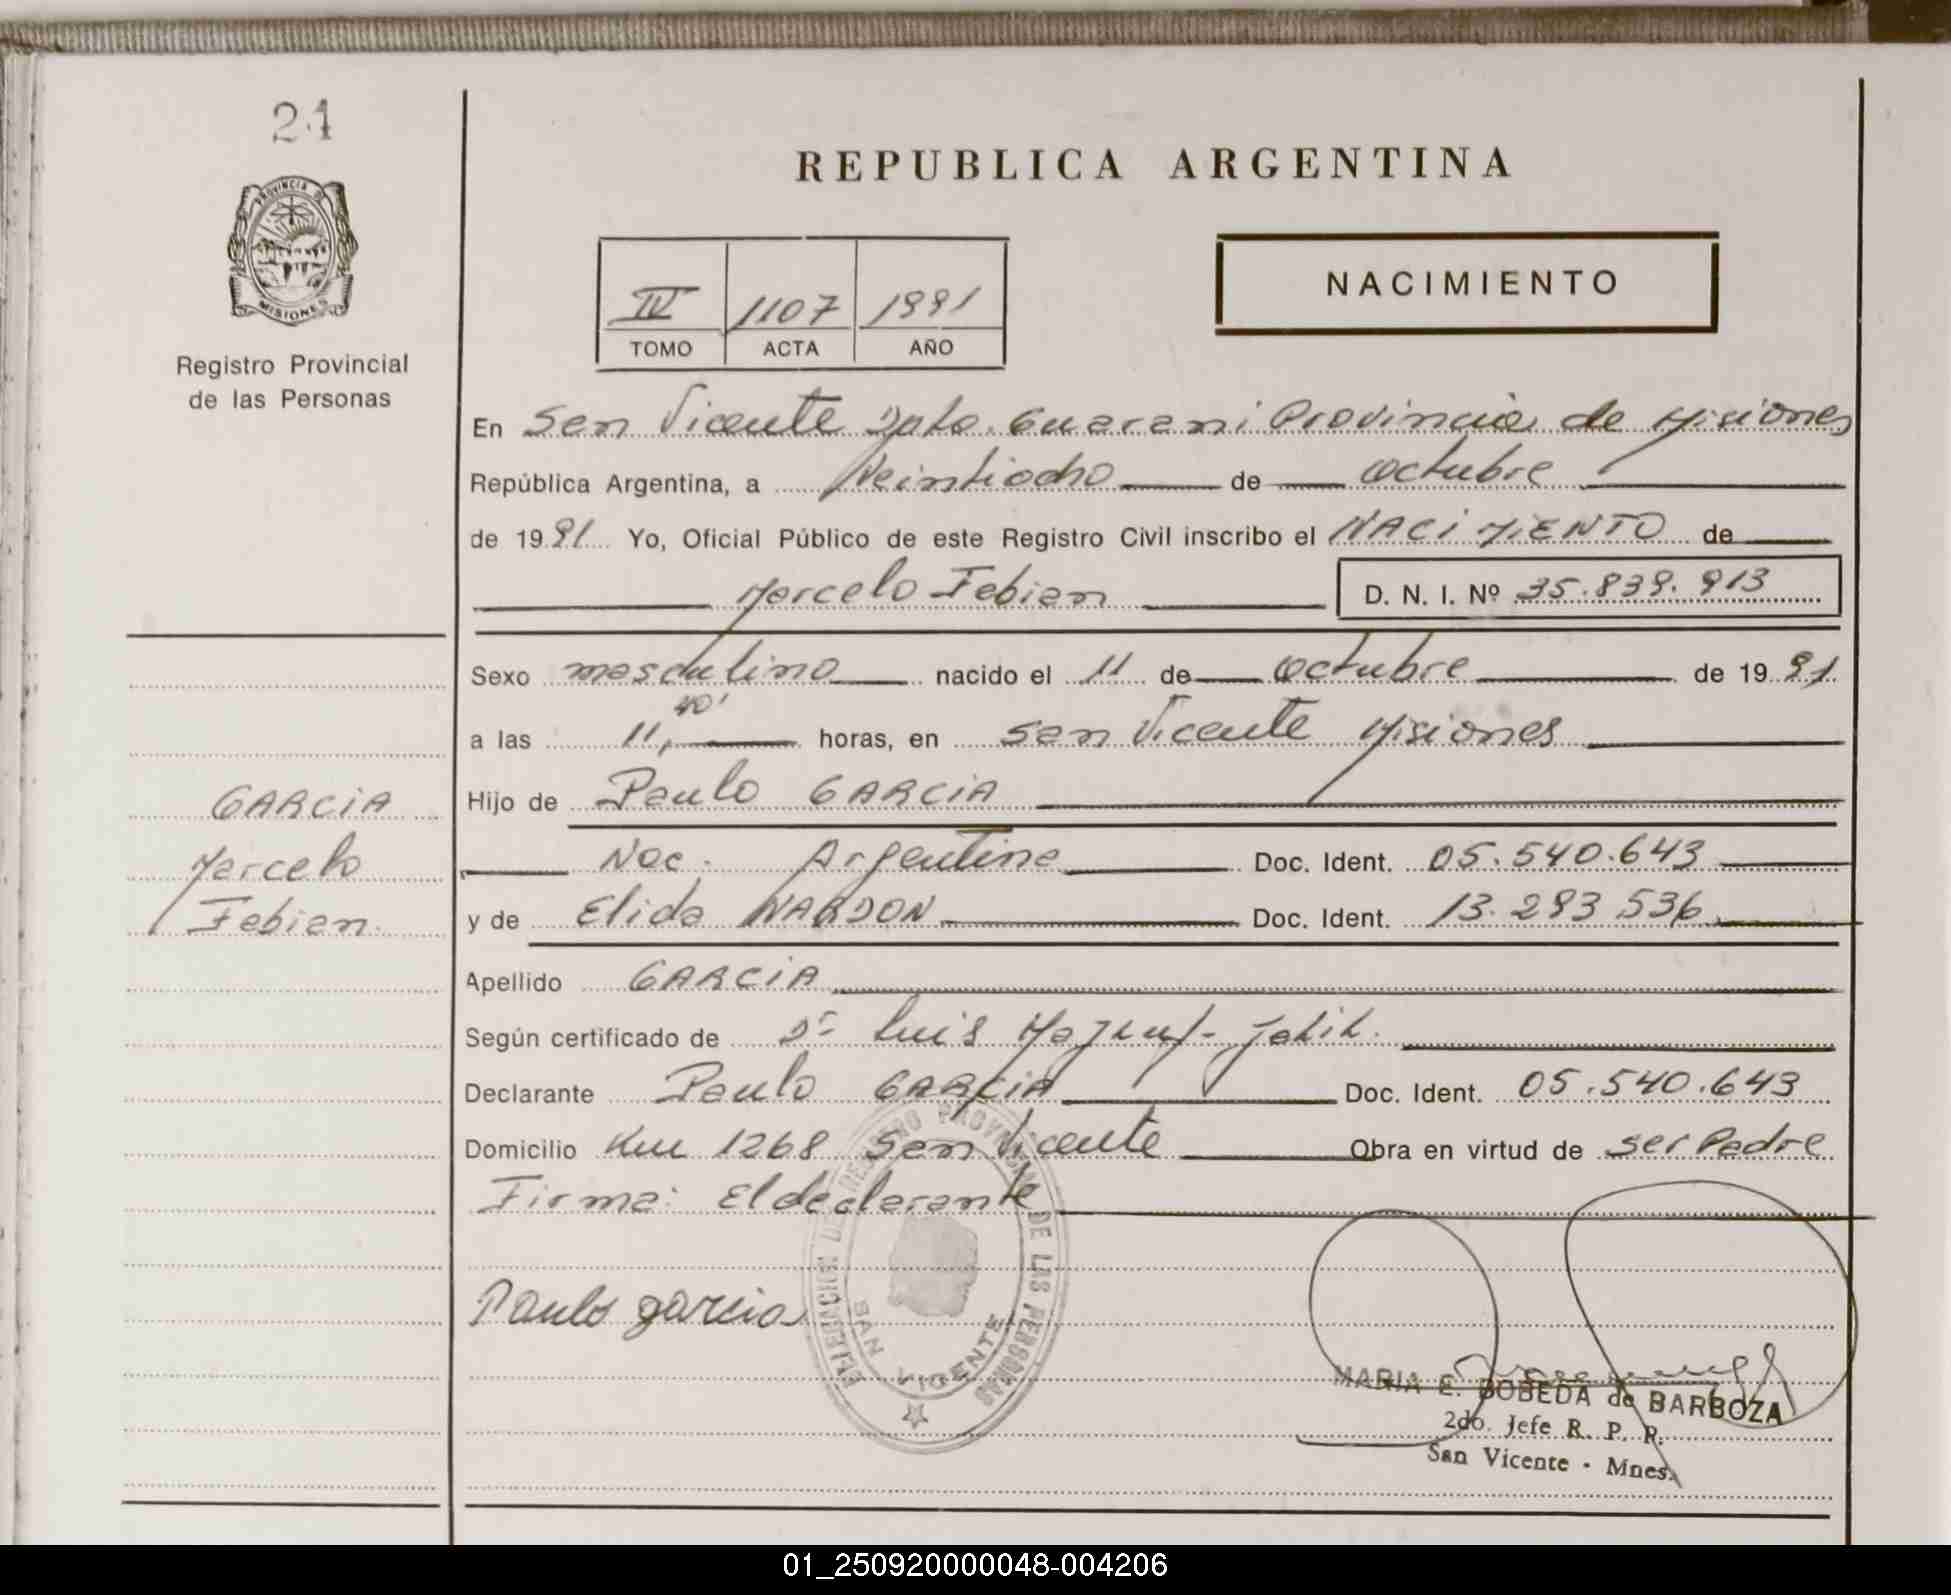 21
REPUBLICA ARGENTINA
PROVINCIA DE
MISIONES
Registro Provincial
de las Personas
IV 1107 1991
TOMO ACTA AÑO
NACIMIENTO
En San Vicente Dpto. Guarani Provincia de Misiones
República Argentina, a Veintiocho de octubre
de 1991 Yo, Oficial Público de este Registro Civil inscribo el NACIMIENTO de
Marcelo Fabian D. N. I. Nº 35.839.913
Sexo masculino nacido el 11 de octubre de 1991
a las 11,40' horas, en San Vicente Misiones
Hijo de Paulo GARCIA
Nac. Argentina Doc. Ident. 05.540.643
y de Elida Doc. Ident. 13.293.536
GARCIA
Marcelo
Fabian.
Apellido GARCIA
Según certificado de Dr Luis
Declarante Paulo GARCIA Doc. Ident. 05.540.643
Domicilio Km 1268 San Vicente Obra en virtud de ser Padre
Firma: El declarante
Paulo garcia
DELEGACION DEL REGISTRO PROVINCIAL DE LAS PERSONAS
SAN VICENTE
MARIA E. BOBEDA de BARBOZA
2do. Jefe R. P. P.
San Vicente - Mnes.
01_250920000048-004206